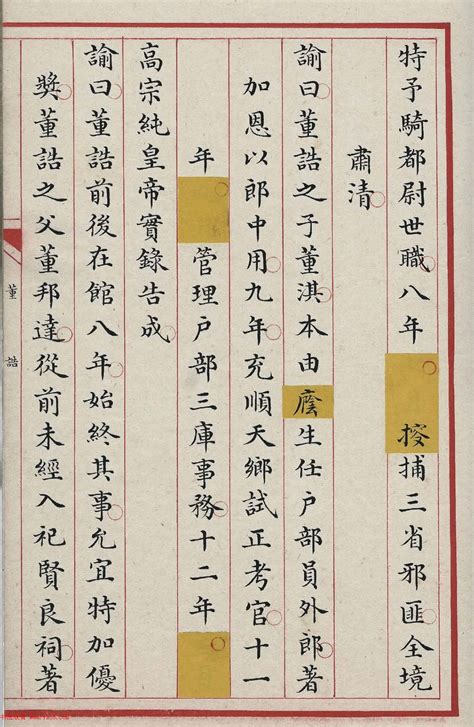 特予騎都尉世職八年搜捕三省邪匪全境
肅清
諭曰董誥之子董淇本由廕生任戶部員外郎著
加恩以郎中用九年充順天鄉試正考官十一
年管理戶部三庫事務十二年
高宗純皇帝實錄告成
諭曰董誥前後在館八年始終其事允宜特加優
獎董誥之父董邦達從前未經入祀賢良祠著
董誥